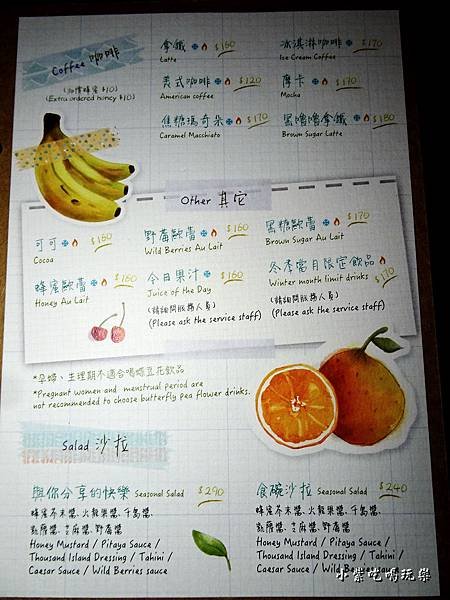 Coffee 咖啡
(加價蜂蜜 $10)
(Extra ordered honey $10)
拿鐵 $160
Latte
冰淇淋咖啡 $170
Ice Cream Coffee
美式咖啡 $120
American coffee
摩卡 $170
Mocha
焦糖瑪奇朵 $170
Caramel Macchiato
黑嚕嚕拿鐵 $180
Brown Sugar Latte
Other 其它
可可 $160
Cocoa
野莓歐蕾 $160
Wild Berries Au Lait
黑糖歐蕾 $170
Brown Sugar Au Lait
蜂蜜歐蕾 $160
Honey Au Lait
今日果汁 $160
Juice of the Day
(請詢問服務人員)
(Please ask the service staff)
冬季當月限定飲品
Winter month limit drinks $170
(請詢問服務人員)
(Please ask the service staff)
*孕婦、生理期不適合喝蝶豆花飲品
*Pregnant women and menstrual period are
not recommended to choose butterfly pea flower drinks.
Salad 沙拉
與你分享的快樂 Seasonal Salad $290
蜂蜜芥末醬、火龍果醬、千島醬、
凱薩醬、芝麻醬、野莓醬
Honey Mustard / Pitaya Sauce /
Thousand Island Dressing / Tahini /
Caesar Sauce / Wild Berries sauce
食碗沙拉 Seasonal Salad $240
蜂蜜芥末醬、火龍果醬、千島醬、
凱薩醬、芝麻醬、野莓醬
Honey Mustard / Pitaya Sauce /
Thousand Island Dressing / Tahini /
Caesar Sauce / Wild Berries sauce
小紫吃喝玩樂